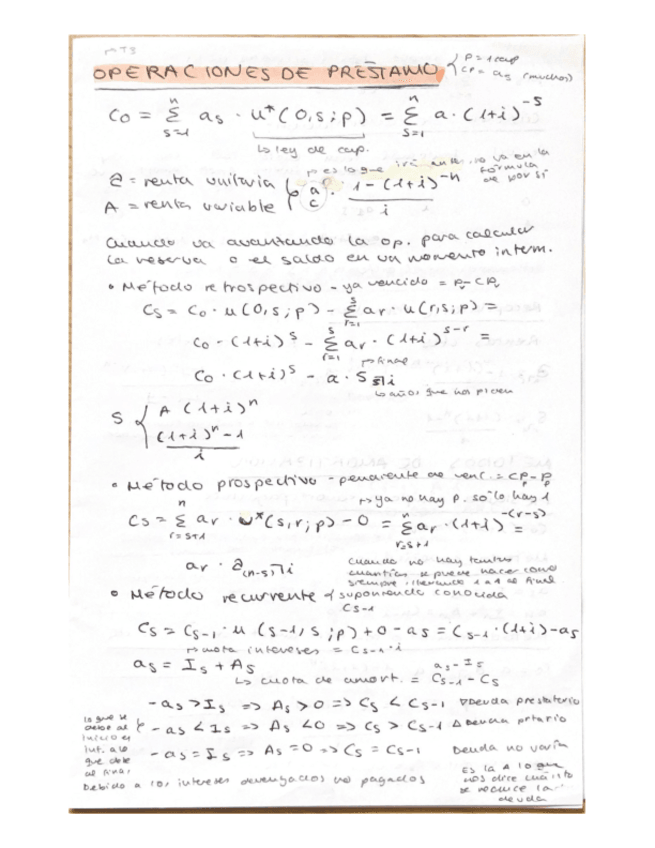 MT3
OPERACIONES DE PRÉSTAMO { P = 1 cap
CP = as (muchos)
C0 = Σ(s=1→n) as · u*(0,s;p) = Σ(s=1→n) a·(1+i)^-s
↳ ley de cap.
a = renta unitaria
A = renta variable
(a/c) · (1-(1+i)^-n)/i
fórmula
de por sí
Cuando va avanzando la op. para calcular
la reserva o el saldo en un momento interm.
• Método retrospectivo - ya vencido = Pp - CPp
Cs = C0 · u(0,s;p) - Σ(r=1→s) ar · u(r,s;p) =
C0 · (1+i)^s - Σ(r=1→s) ar · (1+i)^(s-r) =
↳ final
C0 · (1+i)^s - a · S s̅|i
↳ años que nos piden
S { A (1+i)^n
((1+i)^n - 1)/i
• Método prospectivo - pendiente de venc. = CPp - Pp
↳ ya no hay p. sólo hay 1
Cs = Σ(r=s+1→n) ar · u*(s,r;p) - 0 = Σ(r=s+1→n) ar · (1+i)^-(r-s) =
ar · a(n-s)̅|i
Cuando no hay tantas
cuantías se puede hacer como
siempre, llevando 1 a 1 al final
• Método recurrente ↲ suponiendo conocida
Cs-1
Cs = Cs-1 · u(s-1,s;p) + 0 - as = Cs-1 · (1+i) - as
↳ cuota intereses = Cs-1 · i
as = Is + As
as - Is
↳ cuota de amort. = Cs-1 - Cs
- as > Is => As > 0 => Cs < Cs-1 ∇Deuda prestatario
- as < Is => As < 0 => Cs > Cs-1 Δ Deuda ptario
- as = Is => As = 0 => Cs = Cs-1 Deuda no varía
lo que se
debe al
inicio es
int. a lo
que debe
al final
debido a los intereses devengados no pagados
Es la A lo que
nos dice cuánto
se reduce la
deuda